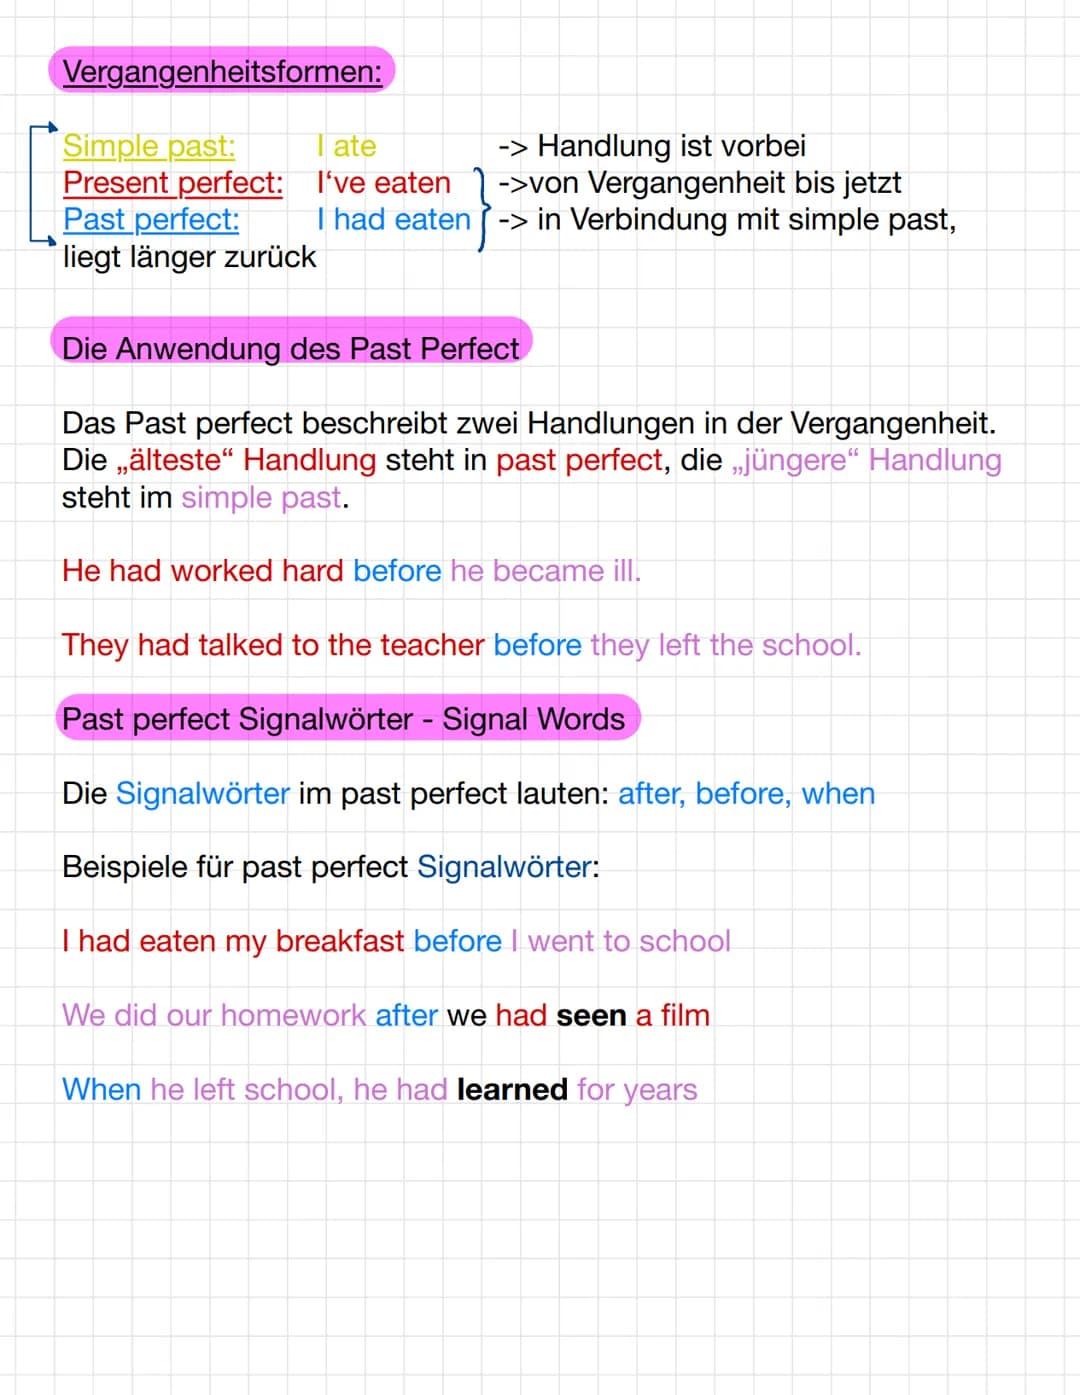 Vergangenheitsformen:
Simple past: I ate -> Handlung ist vorbei
Present perfect: I‘ve eaten ->von Vergangenheit bis jetzt
Past perfect: I had eaten -> in Verbindung mit simple past,
liegt länger zurück
Die Anwendung des Past Perfect
Das Past perfect beschreibt zwei Handlungen in der Vergangenheit.
Die „älteste“ Handlung steht in past perfect, die „jüngere“ Handlung
steht im simple past.
He had worked hard before he became ill.
They had talked to the teacher before they left the school.
Past perfect Signalwörter - Signal Words
Die Signalwörter im past perfect lauten: after, before, when
Beispiele für past perfect Signalwörter:
I had eaten my breakfast before I went to school
We did our homework after we had seen a film
When he left school, he had learned for years